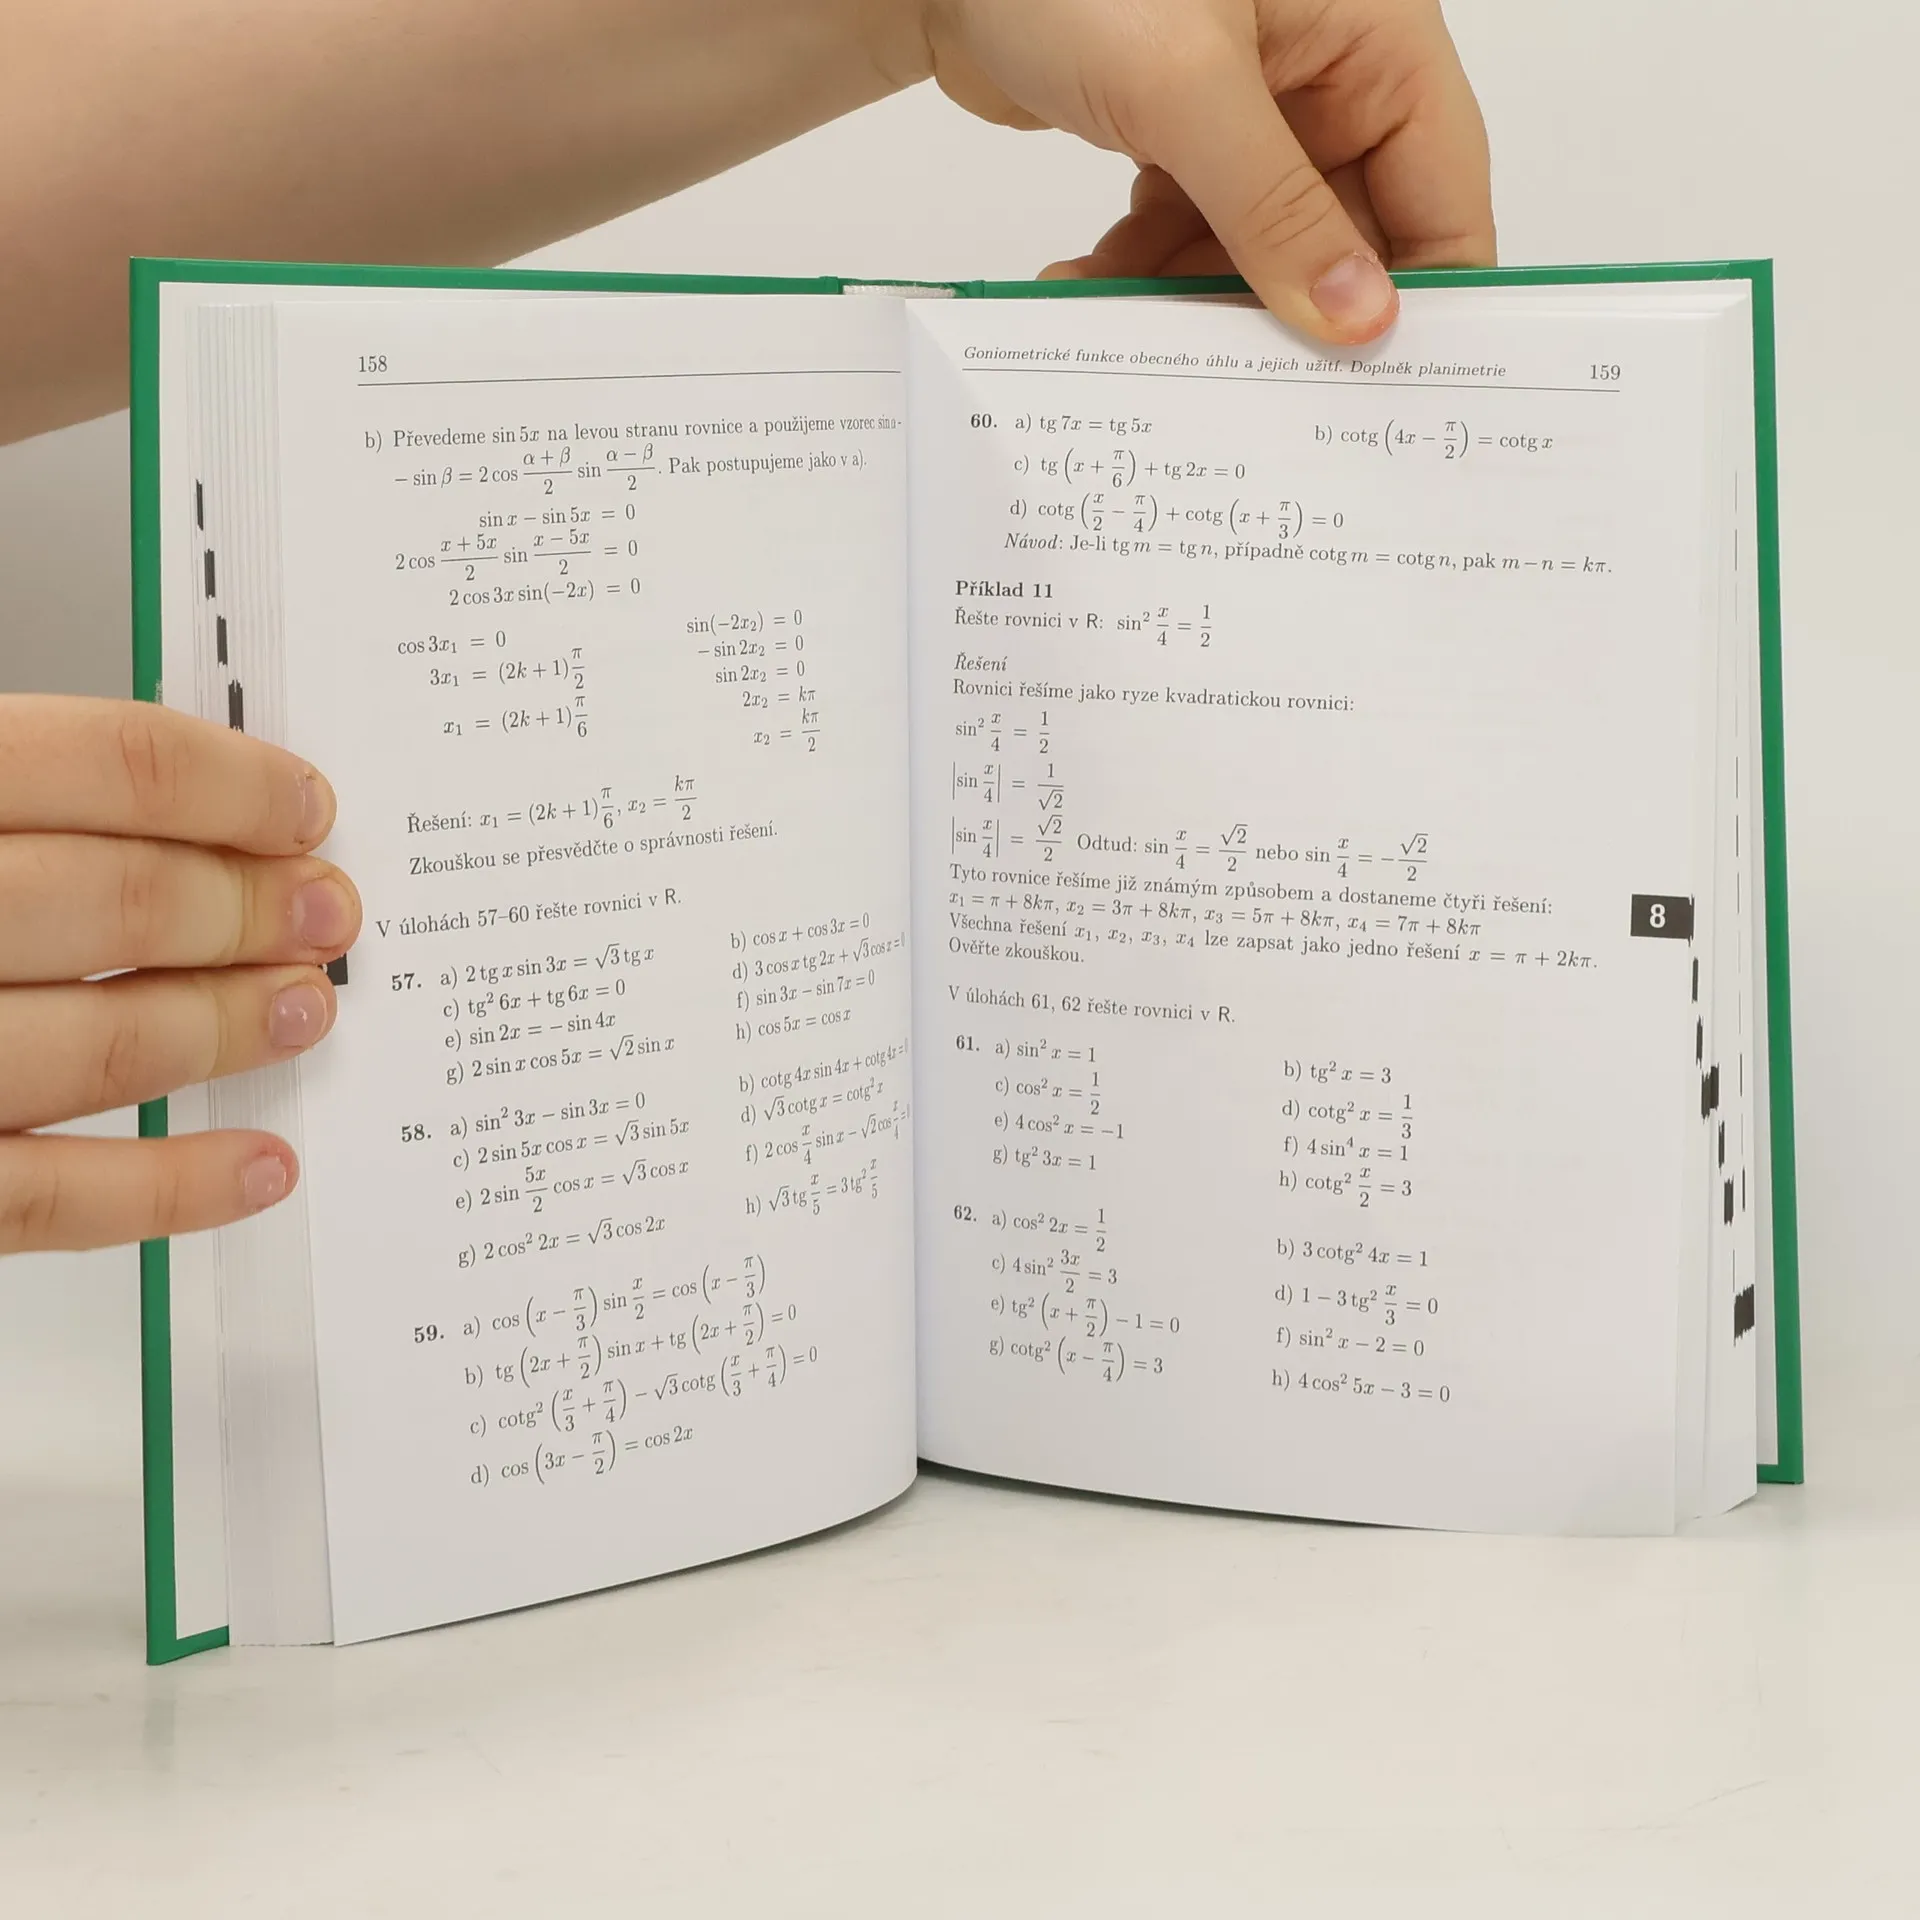 158
b) Převedeme sin 5x na levou stranu rovnice a použijeme vzorec sin α-
− sin β = 2 cos (α + β)/2 sin (α − β)/2. Pak postupujeme jako v a).
sin x − sin 5x = 0
2 cos (x + 5x)/2 sin (x − 5x)/2 = 0
2 cos 3x sin(−2x) = 0
cos 3x₁ = 0
3x₁ = (2k + 1) π/2
x₁ = (2k + 1) π/6
sin(−2x₂) = 0
− sin 2x₂ = 0
sin 2x₂ = 0
2x₂ = kπ
x₂ = kπ/2
Řešení: x₁ = (2k + 1) π/6, x₂ = kπ/2
Zkouškou se přesvědčte o správnosti řešení.
V úlohách 57–60 řešte rovnici v R.
57. a) 2 tg x sin 3x = √3 tg x b) cos x + cos 3x = 0
c) tg² 6x + tg 6x = 0 d) 3 cos x tg 2x + √3 cos x = 0
e) sin 2x = − sin 4x f) sin 3x − sin 7x = 0
g) 2 sin x cos 5x = √2 sin x h) cos 5x = cos x
58. a) sin² 3x − sin 3x = 0 b) cotg 4x sin 4x + cotg 4x = 0
c) 2 sin 5x cos x = √3 sin 5x d) √3 cotg x = cotg² x
e) 2 sin 5x/2 cos x = √3 cos x f) 2 cos x/4 sin x − √2 cos x/4 = 0
g) 2 cos² 2x = √3 cos 2x h) √3 tg x/5 = 3 tg² x/5
59. a) cos (x − π/3) sin x/2 = cos (x − π/3)
b) tg (2x + π/2) sin x + tg (2x + π/2) = 0
c) cotg² (x/3 + π/4) − √3 cotg (x/3 + π/4) = 0
d) cos (3x − π/2) = cos 2x
Goniometrické funkce obecného úhlu a jejich užití. Doplněk planimetrie 159
60. a) tg 7x = tg 5x b) cotg (4x − π/2) = cotg x
c) tg (x + π/6) + tg 2x = 0
d) cotg (x/2 − π/4) + cotg (x + π/3) = 0
Návod: Je-li tg m = tg n, případně cotg m = cotg n, pak m − n = kπ.
Příklad 11
Řešte rovnici v R: sin² x/4 = 1/2
Řešení
Rovnici řešíme jako ryze kvadratickou rovnici:
sin² x/4 = 1/2
|sin x/4| = 1/√2
|sin x/4| = √2/2 Odtud: sin x/4 = √2/2 nebo sin x/4 = −√2/2
Tyto rovnice řešíme již známým způsobem a dostaneme čtyři řešení:
x₁ = π + 8kπ, x₂ = 3π + 8kπ, x₃ = 5π + 8kπ, x₄ = 7π + 8kπ
Všechna řešení x₁, x₂, x₃, x₄ lze zapsat jako jedno řešení x = π + 2kπ.
Ověřte zkouškou.
8
V úlohách 61, 62 řešte rovnici v R.
61. a) sin² x = 1 b) tg² x = 3
c) cos² x = 1/2 d) cotg² x = 1/3
e) 4 cos² x = −1 f) 4 sin⁴ x = 1
g) tg² 3x = 1 h) cotg² x/2 = 3
62. a) cos² 2x = 1/2 b) 3 cotg² 4x = 1
c) 4 sin² 3x/2 = 3 d) 1 − 3 tg² x/3 = 0
e) tg² (x + π/2) − 1 = 0 f) sin² x − 2 = 0
g) cotg² (x − π/4) = 3 h) 4 cos² 5x − 3 = 0